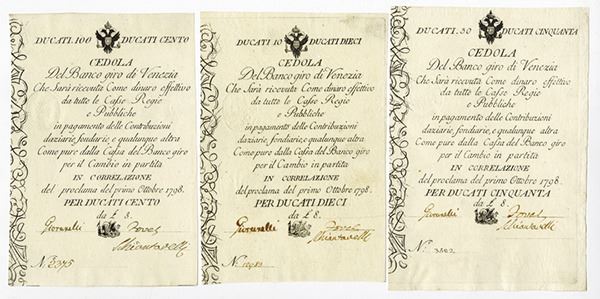 DUCATI. 100 DUCATI CENTO
CEDOLA
Del Banco giro di Venezia
Che Sarà ricevuta Come dinaro effettivo
da tutte le Casse Regie
e Pubbliche
in pagamento delle Contribuzioni
daziarie, fondiarie, e qualunque altra
Come pure dalla Cassa del Banco giro
per il Cambio in partita
IN CORRELAZIONE
del proclama del primo Ottobre 1798.
PER DUCATI CENTO
da £ 8.
N.º 2375
DUCATI. 10 DUCATI DIECI
CEDOLA
Del Banco giro di Venezia
Che Sarà ricevuta Come dinaro effettivo
da tutte le Casse Regie
e Pubbliche
in pagamento delle Contribuzioni
daziarie, fondiarie, e qualunque altra
Come pure dalla Cassa del Banco giro
per il Cambio in partita
IN CORRELAZIONE
del proclama del primo Ottobre 1798.
PER DUCATI DIECI
da £ 8.
N.º
DUCATI. 50 DUCATI CINQUANTA
CEDOLA
Del Banco giro di Venezia
Che Sarà ricevuta Come dinaro effettivo
da tutte le Casse Regie
e Pubbliche
in pagamento delle Contribuzioni
daziarie, fondiarie, e qualunque altra
Come pure dalla Cassa del Banco giro
per il Cambio in partita
IN CORRELAZIONE
del proclama del primo Ottobre 1798.
PER DUCATI CINQUANTA
da £ 8.
N.º 3802